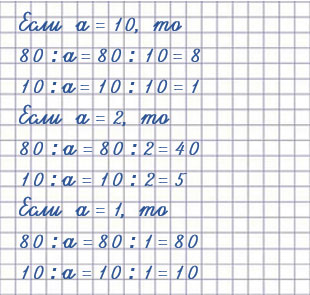 Если а = 10, то
80 : а = 80 : 10 = 8
10 : а = 10 : 10 = 1
Если а = 2, то
80 : а = 80 : 2 = 40
10 : а = 10 : 2 = 5
Если а = 1, то
80 : а = 80 : 1 = 80
10 : а = 10 : 1 = 10